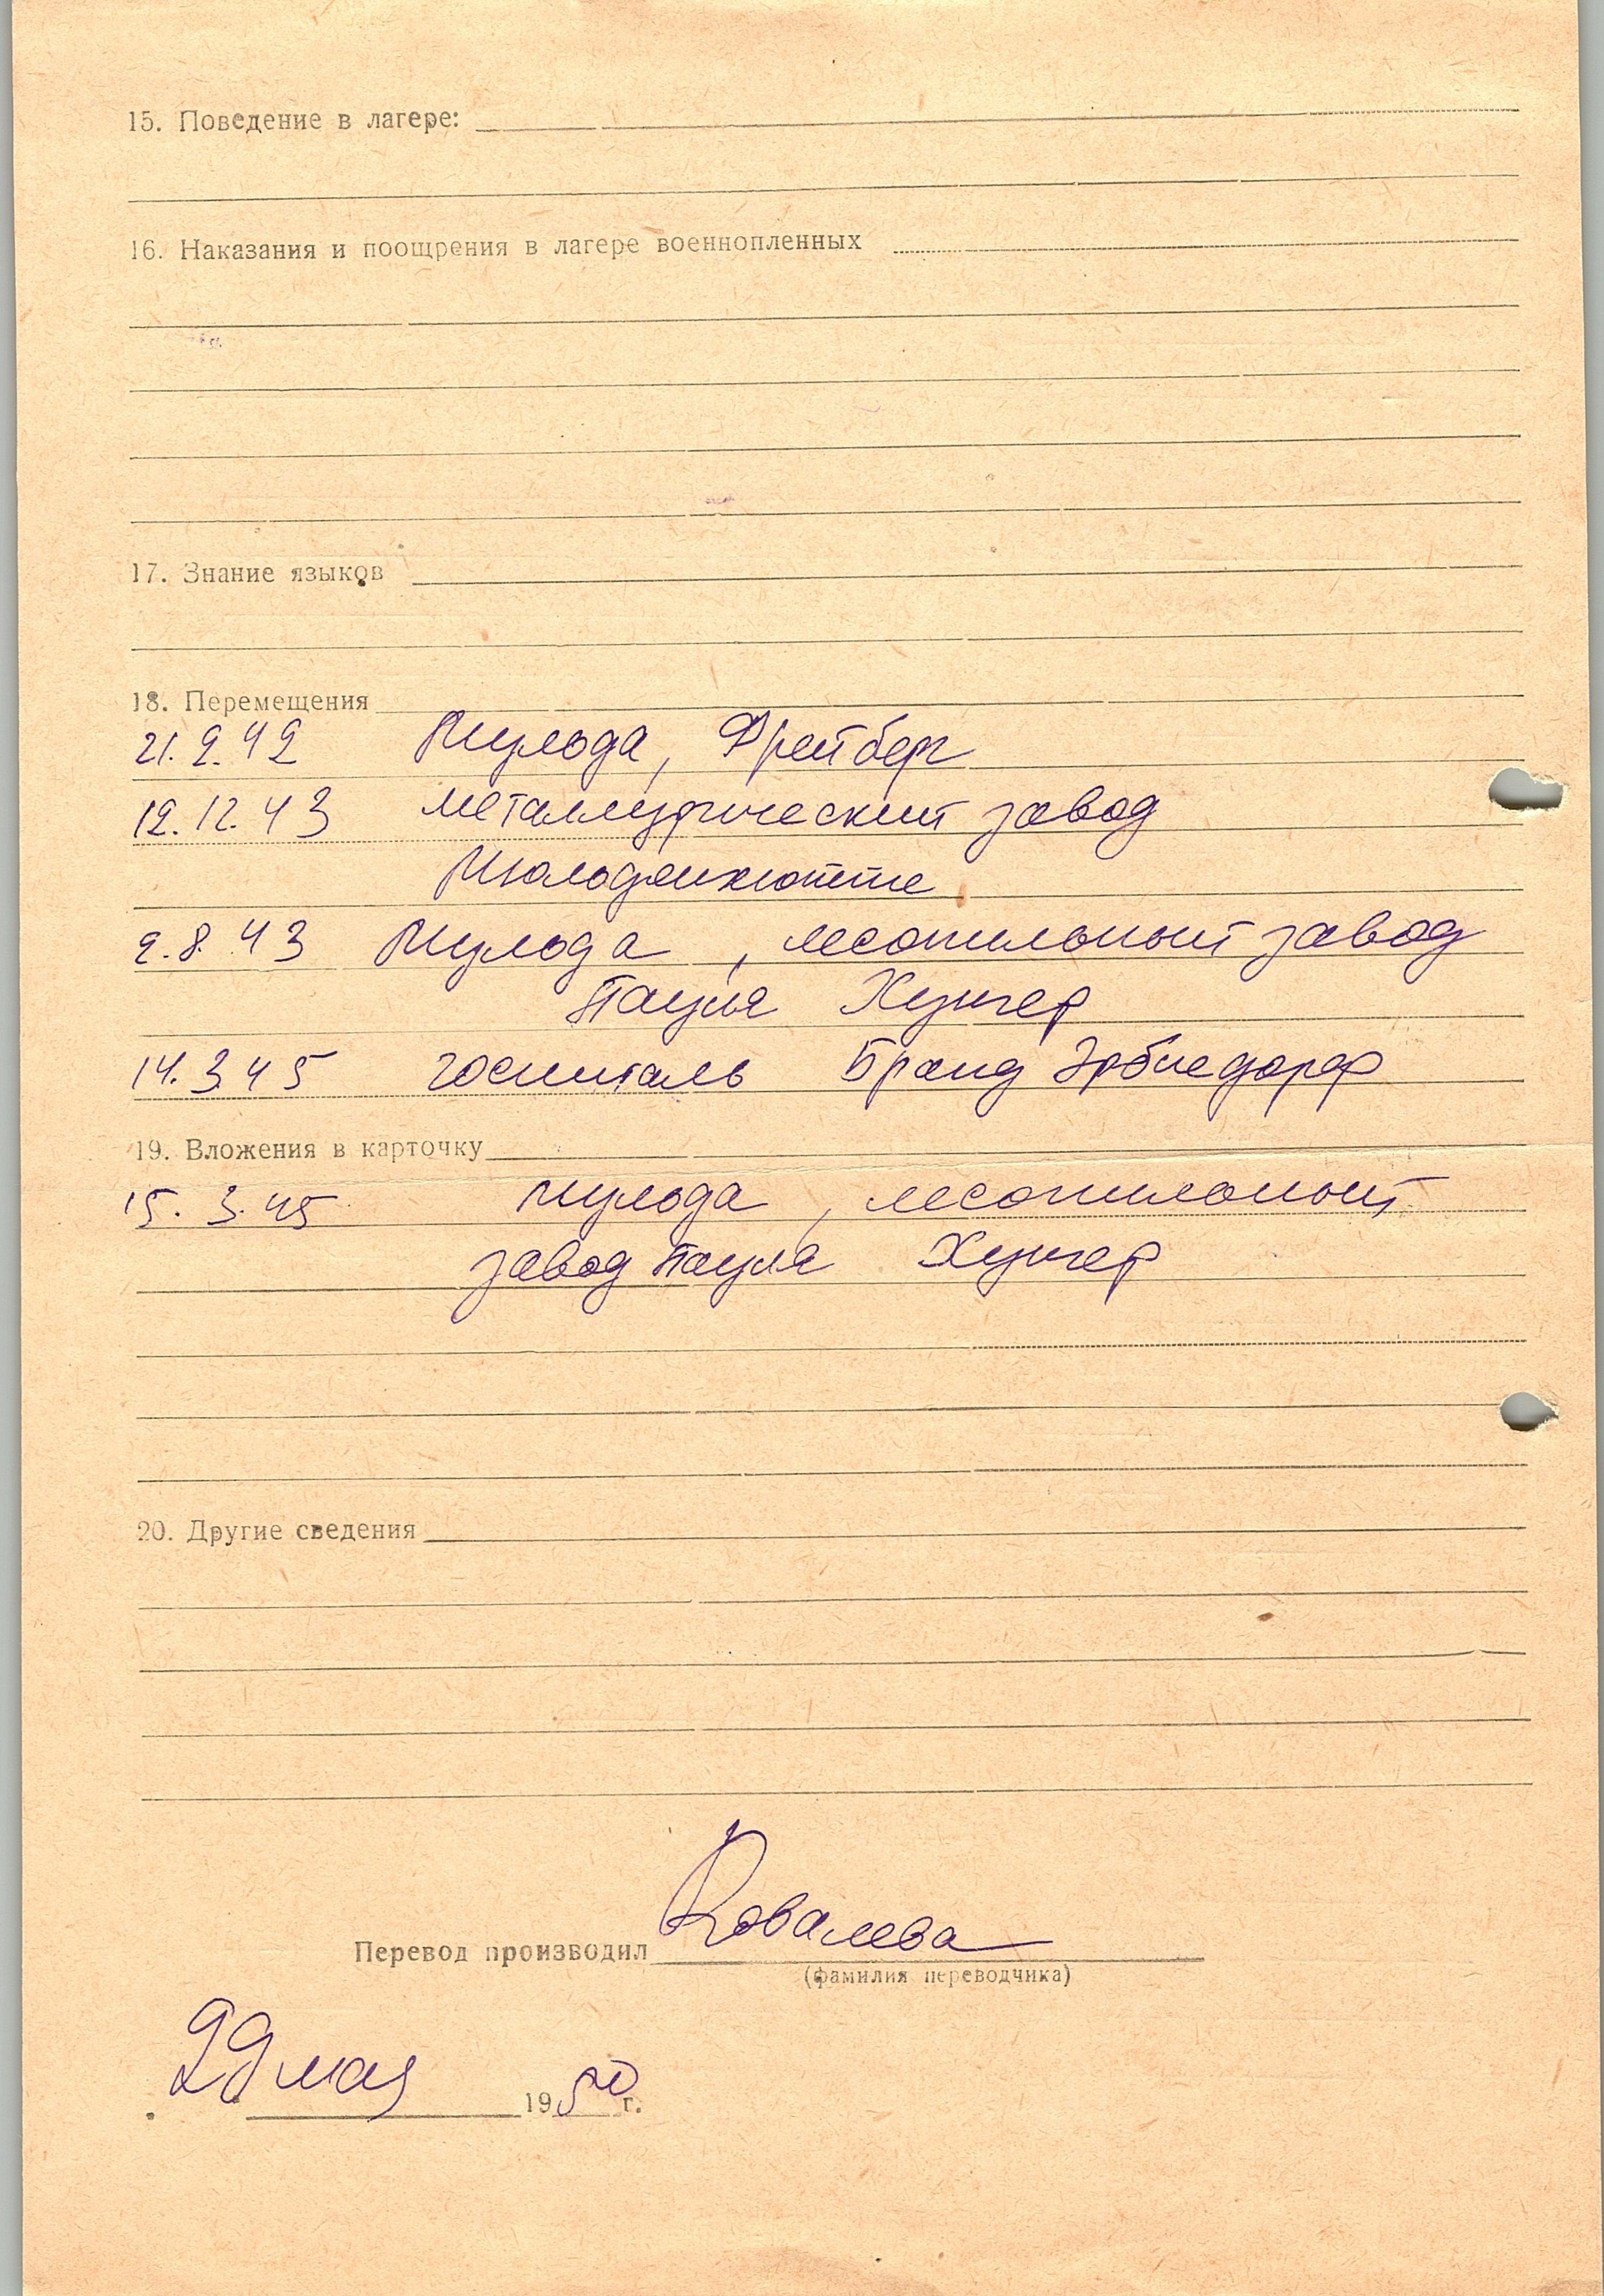 15. Поведение в лагере:
16. Наказания и поощрения в лагере военнопленных
17. Знание языков
18. Перемещения
21.2.42 Мульда, Фрейберг
12.12.43 металлургический завод
Мюльденхютте
2.8.43 Мульда, лесопильный завод
Пауля Хунгер
14.3 45 госпиталь Бранд Эрбисдорф
19. Вложения в карточку
15. 3.45 Мульда, лесопильный
завод Пауля Хунгер
20. Другие сведения
Перевод производил Ковалева
(фамилия переводчика)
29 мая 1950 г.